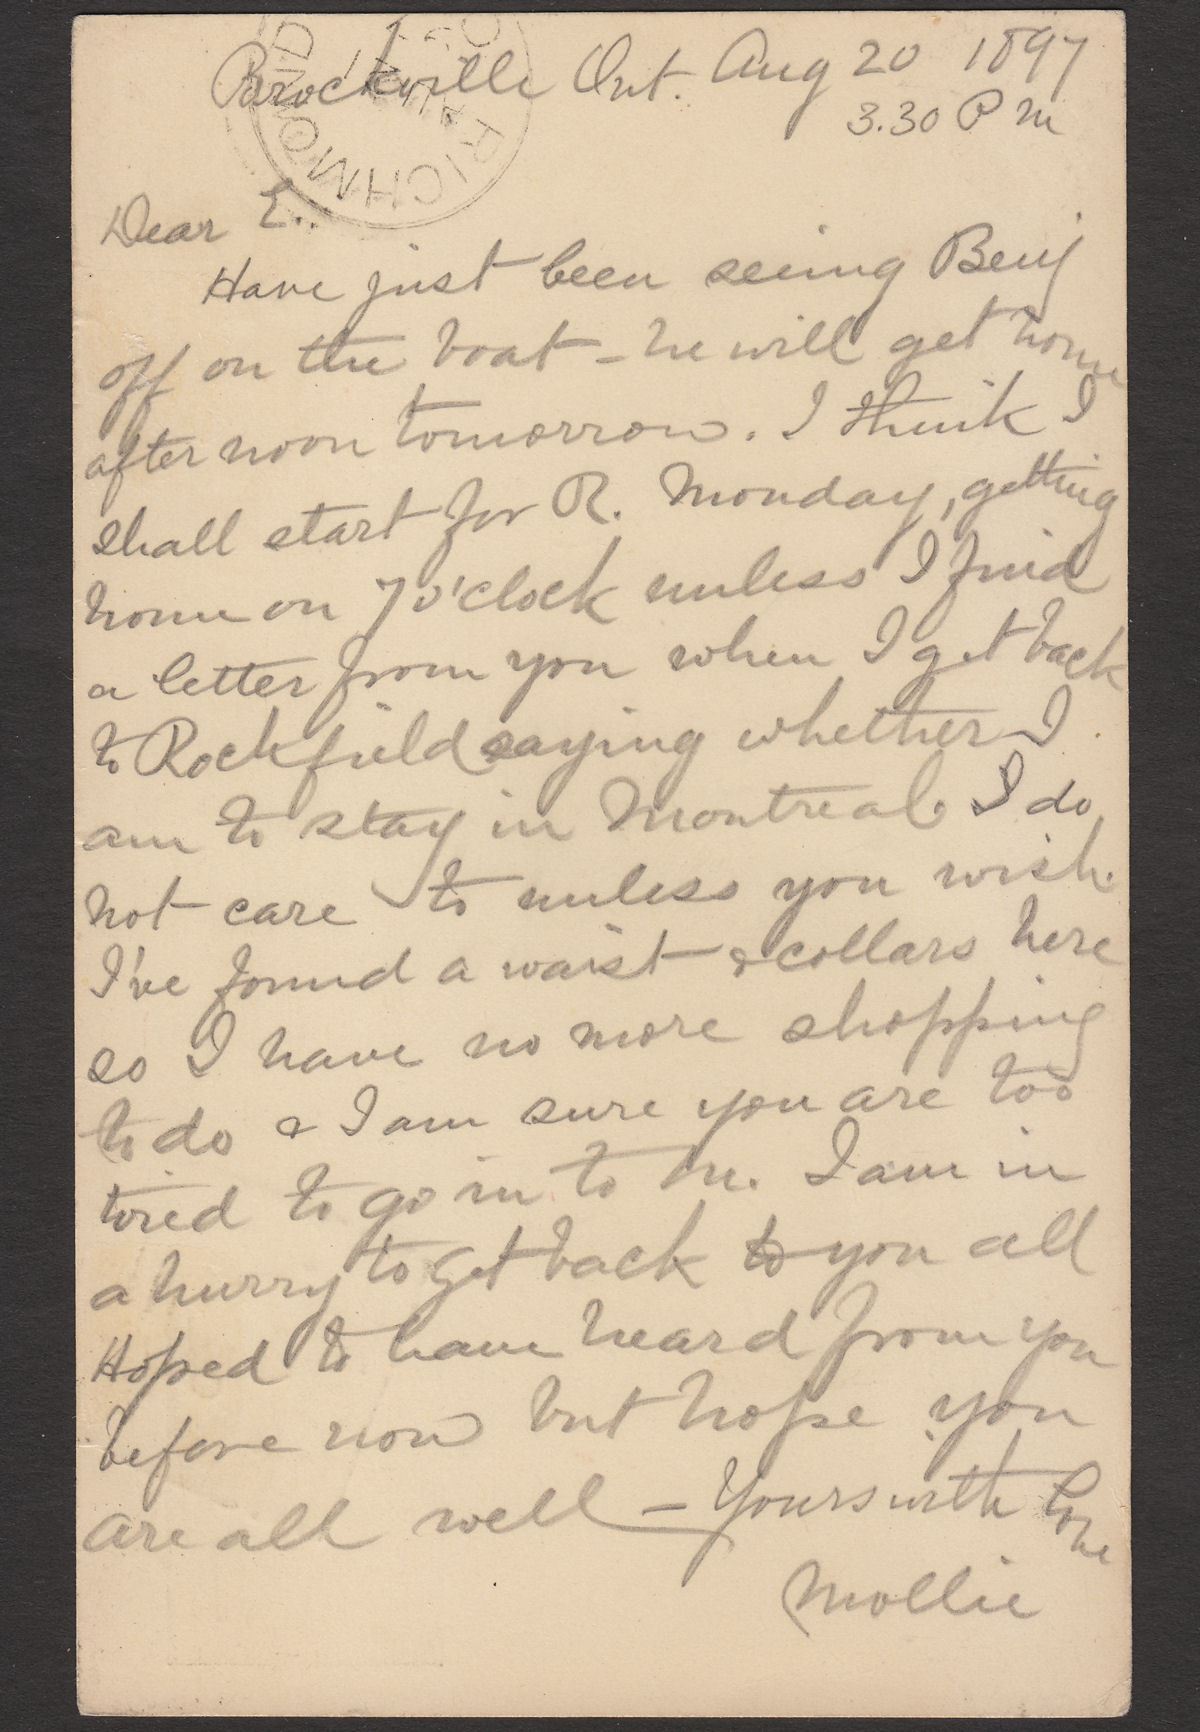 Brockville Ont. Aug 20 1897
3.30 P M
RICHMOND
Dear E..
Have just been seeing Benj
off on the boat - he will get home
after noon tomorrow. I think I
shall start for R. Monday, getting
home on 7 o'clock unless I find
a letter from you when I get back
to Rockfield saying whether I
am to stay in Montreal I do
not care to unless you wish.
I've found a waist & collars here
so I have no more shopping
to do & I am sure you are too
tired to go in to M. I am in
a hurry to get back to you all
Hoped to have heard from you
before now but hope you
are all well - Yours with love
Mollie